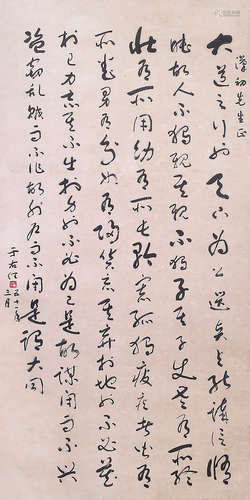 初先生正
大道之行也天下為公選賢與能講信脩
睦故人不獨親其親不獨子其子使老有所終
壯有所用幼有所長矜寡孤獨廢疾者皆有
所養男有分女有歸貨惡其棄於地也不必藏
於己力惡其不出於身也不必為己是故謀閉而不興
盜竊亂賊而不作故外戶而不閉是謂大同
于右任
三月